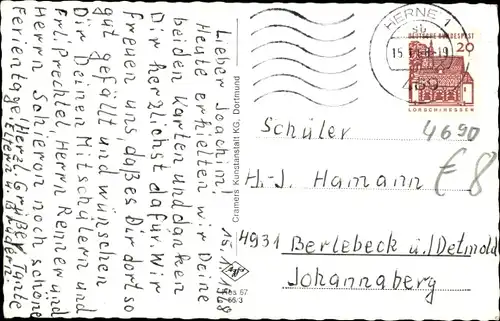 15.1.1968
Lieber Joachim!
Heute erhielten wir Deine
beiden Karten und danken
Dir herzlichst dafür. Wir
freuen uns, daß es Dir dort so
gut gefällt und wünschen
Dir, Deinen Mitschülern und
Frl. Prechtel, Herrn Renner und
Herrn Schieron noch schöne
Ferientage! Herzl. Grüße! Tante
Eltern u. Brüdern
Cramers Kunstanstalt KG, Dortmund
HERNE 1
DEUTSCHE BUNDESPOST
20
LORSCH/HESSEN
4690
€8
Schüler
H.-J. Hamann
4931 Berlebeck ü./Detmold
Johannaberg